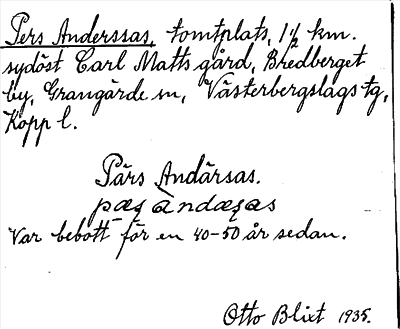 Pers Anderssas, tomtplats, 1½ km.
sydöst Carl Matts gård, Bredberget
by, Grangärde sn, Västerbergslags tg,
Kopp l.
Pärs Andärsas.
pæʂ àndæʂas
Var bebott för en 40-50 år sedan.
Otto Blixt 1935.